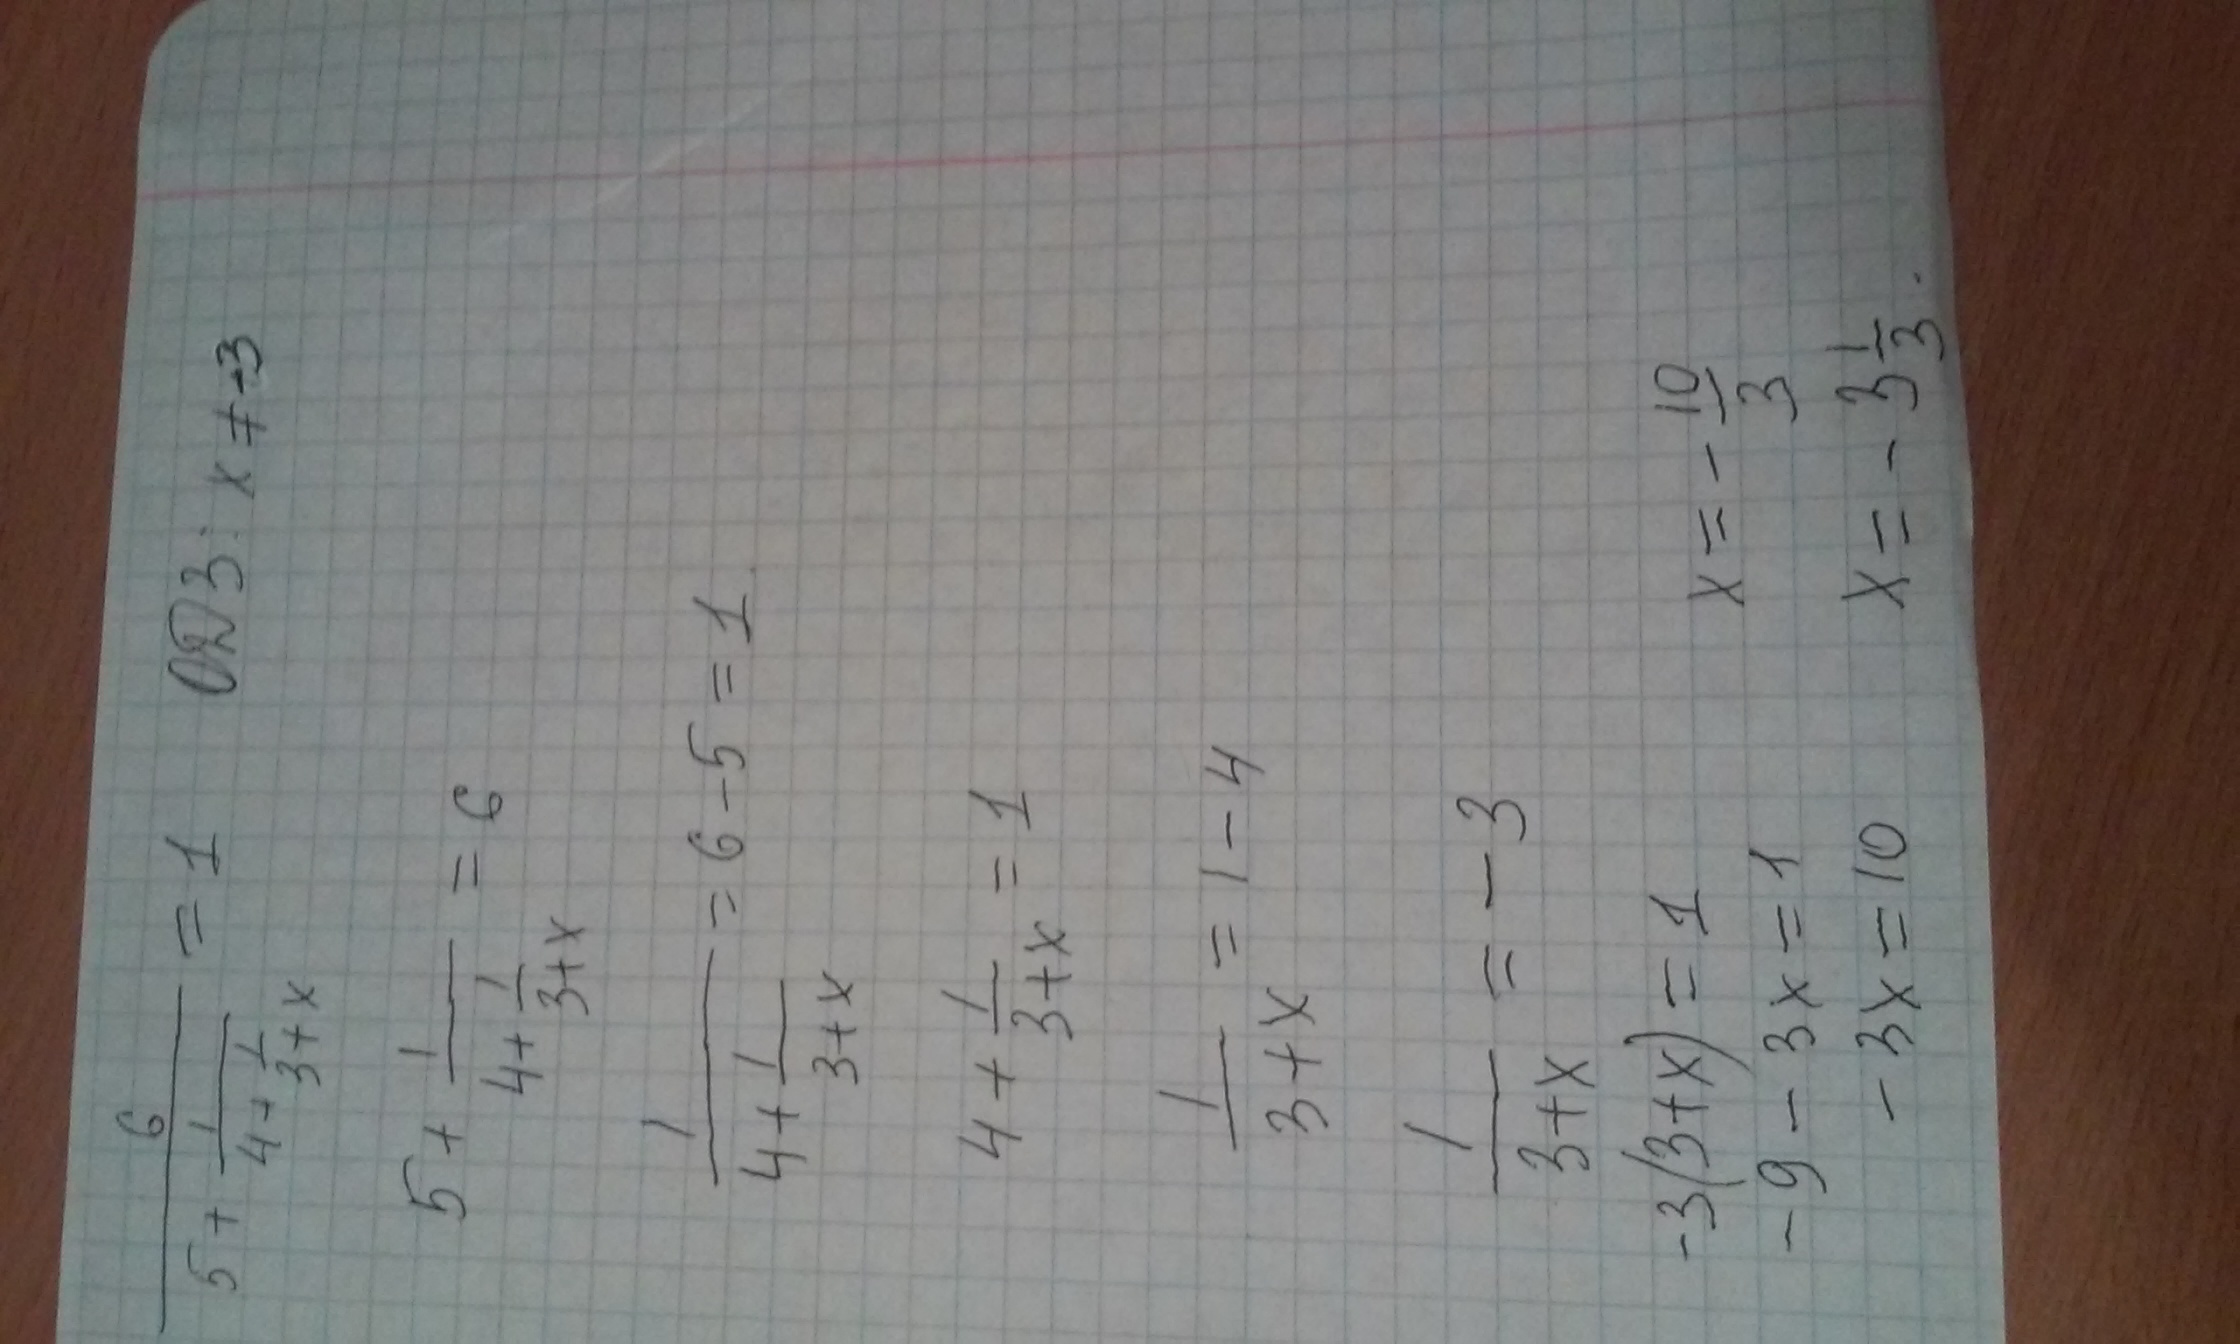 6/(5+1/(4+1/(3+x))) = 1 ОДЗ: x ≠ -3
5+1/(4+1/(3+x)) = 6
1/(4+1/(3+x)) = 6-5 = 1
4+1/(3+x) = 1
1/(3+x) = 1-4
1/(3+x) = -3
-3(3+x) = 1
-9-3x = 1
-3x = 10
x = -10/3
x = -3 1/3.